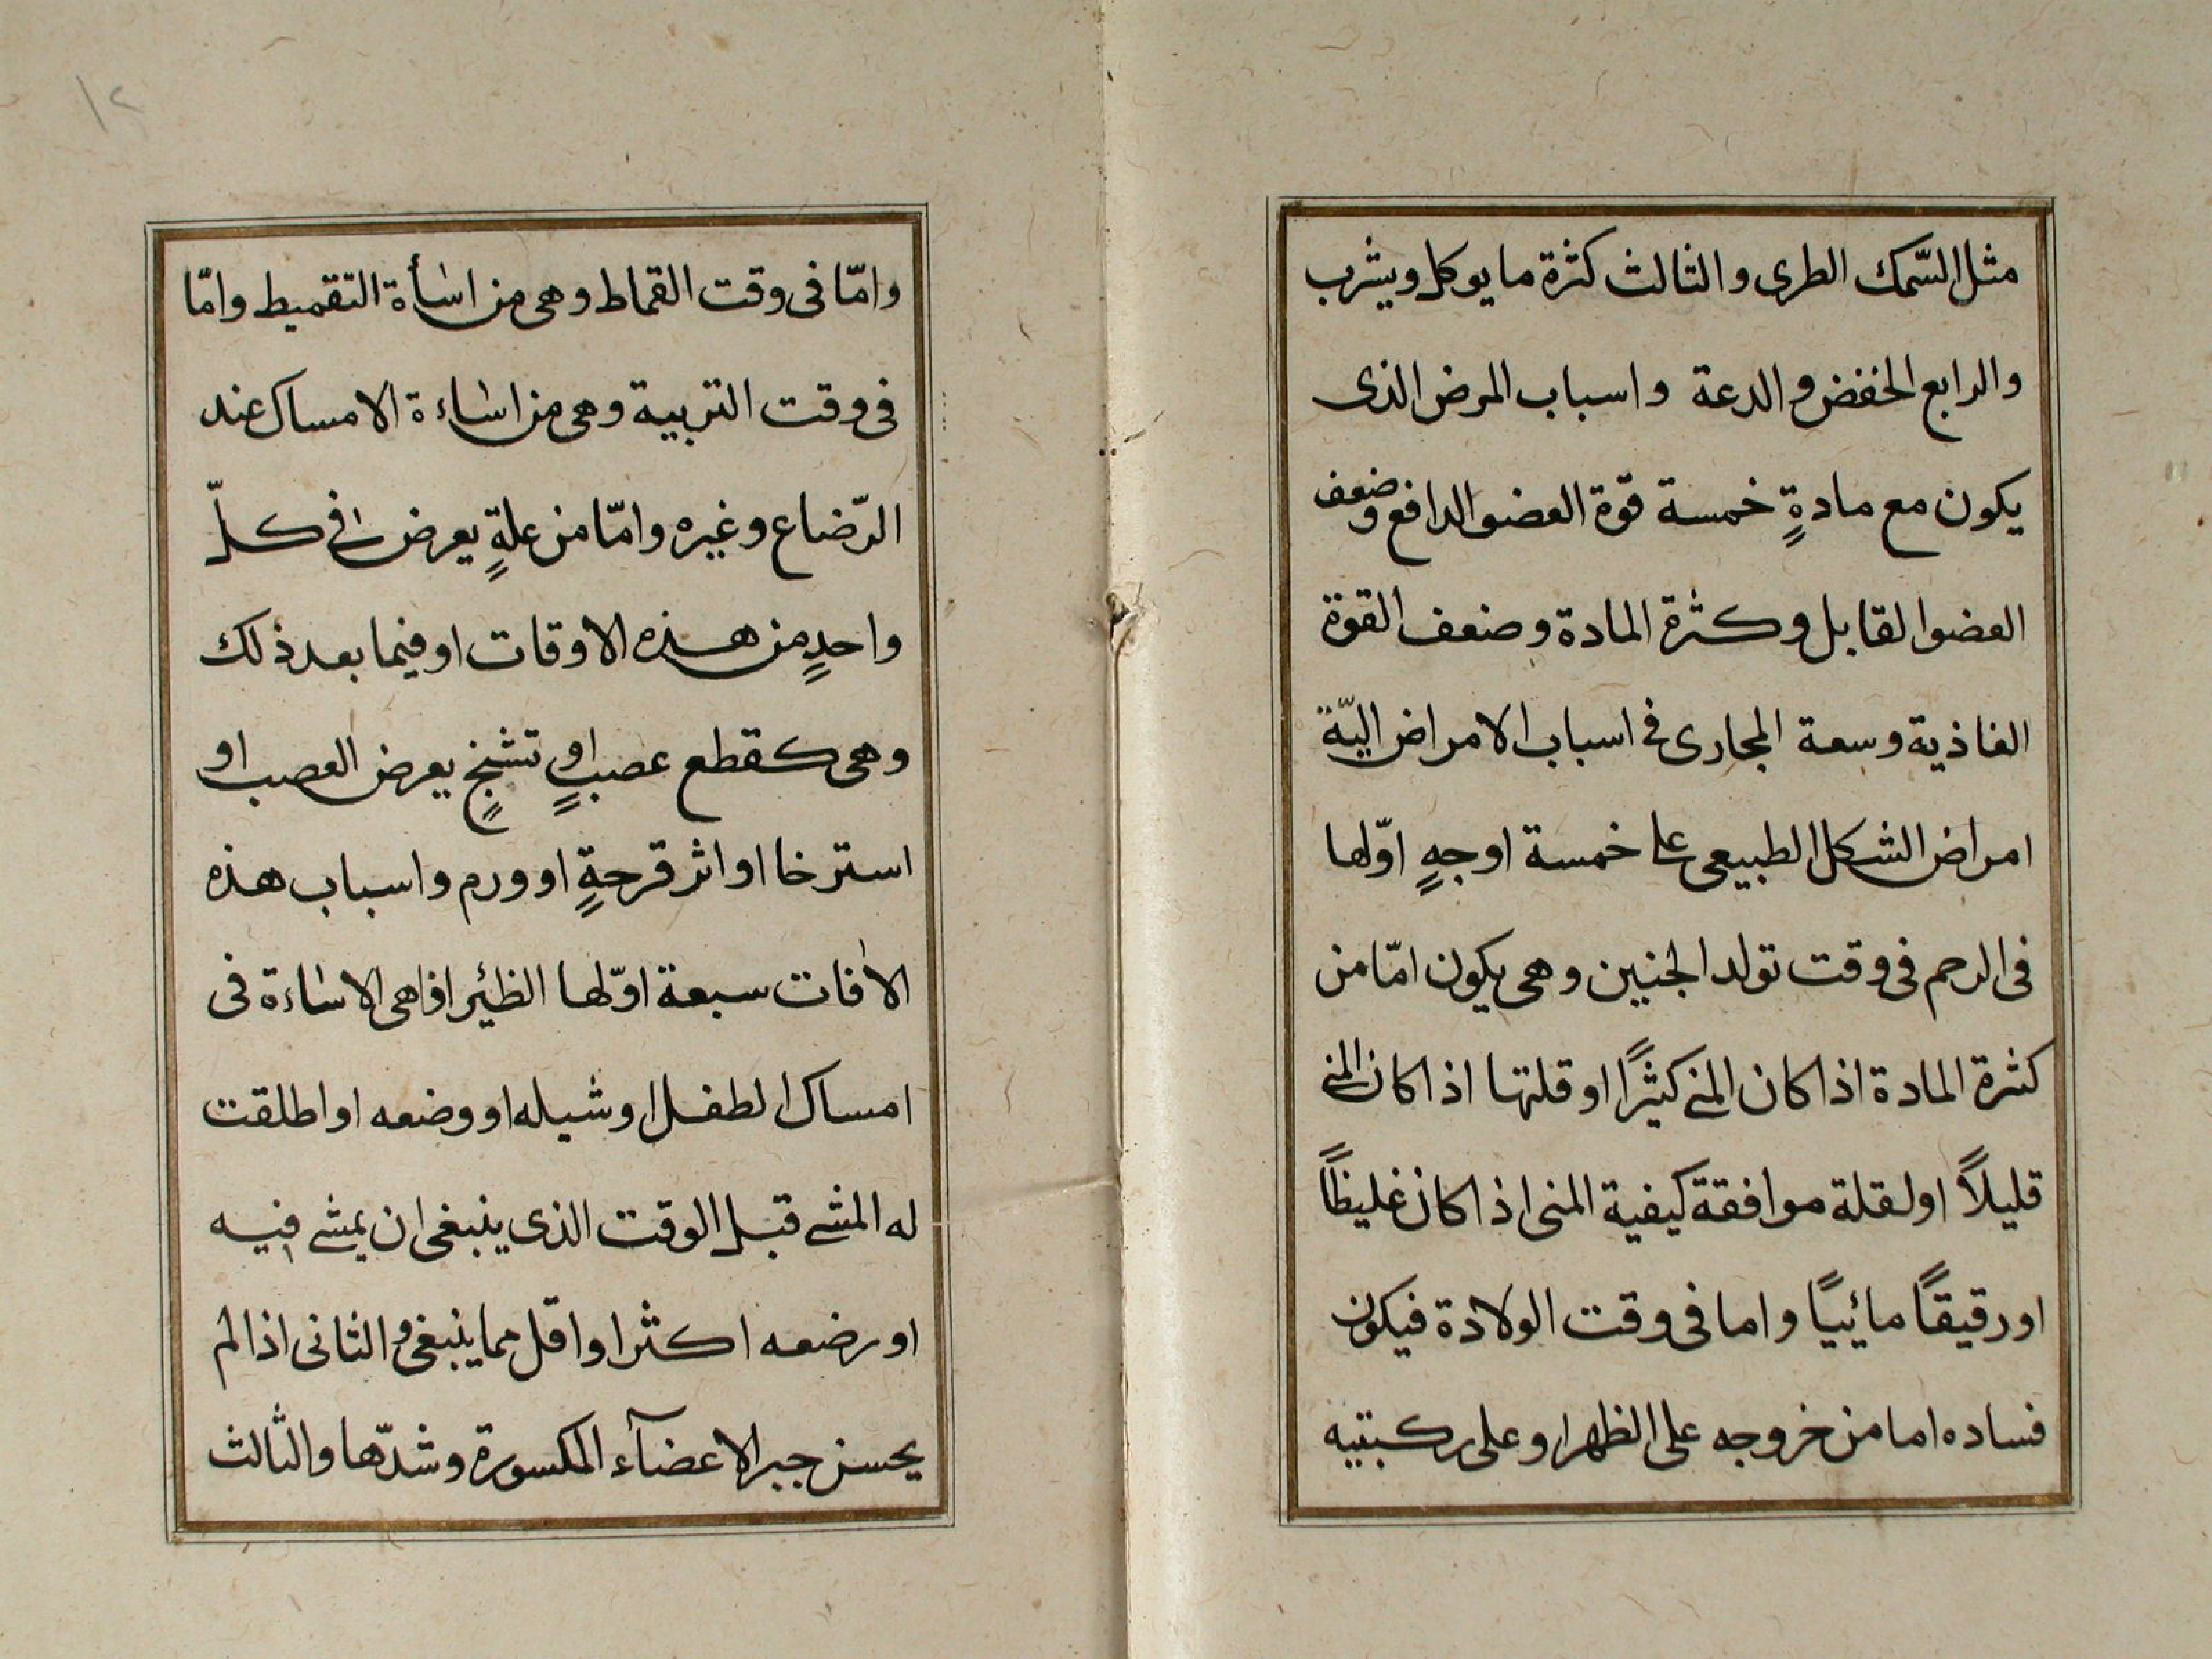 مثل السّمك الطرى والثالث كثرة ما يوكل ويشرب
والرابع الخفض والدعة واسباب المرض الذى
يكون مع مادةٍ خمسة قوّة العضو الدافع وضعف
العضو القابل وكثرة المادة وضعف القوة
الغاذية وسعة المجارى فى اسباب الامراض اليّة
امراض الشكل الطبيعى على خمسة اوجهٍ اوّلها
فى الرحم فى وقت تولد الجنين وهى يكون امّا من
كثرة المادة اذا كان المنى كثيرًا او قلتها اذا كان المنى
قليلاً او لقلة موافقة كيفية المنى اذا كان غليظاً
او رقيقاً مائييًا واما فى وقت الولادة فيكون
فساده اما من خروجه على الظهر او على ركبتيه
١٢
وامّا فى وقت القماط وهى من اسأة التقميط وامّا
فى وقت التربية وهى من اساءة الامساك عند
الرّضاع وغيره وامّا من علةٍ يعرض فى كلّ
واحدٍ من هذه الاوقات او فيما بعد ذلك
وهى كقطع عصبٍ او تشنجٍ يعرض العصب او
استرخا او اثر قرحةٍ او ورم واسباب هذه
الافات سبعة اوّلها الظئير اذا هى الاساءة فى
امساك الطفل او شيله او وضعه او اطلقت
له المشى قبل الوقت الذى ينبغى ان يمشى فيه
او رضعه اكثر او اقل مما ينبغى والثانى اذا لم
يحسن جبر الاعضآء المكسورة وشدّها والثالث